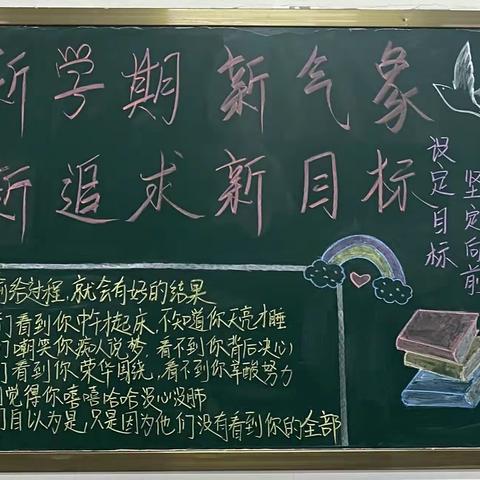 新学期新气象
新追求新目标
设定目标
坚定向前
给过程,就会有好的结果
看到你中午才起床,不知道你天亮才睡
嘲笑你痴人说梦,看不到你背后决心
看到你荣华围绕,看不到你辛酸努力
觉得你嘻嘻哈哈没心没肺
自以为是,只是因为他们没有看到你的全部